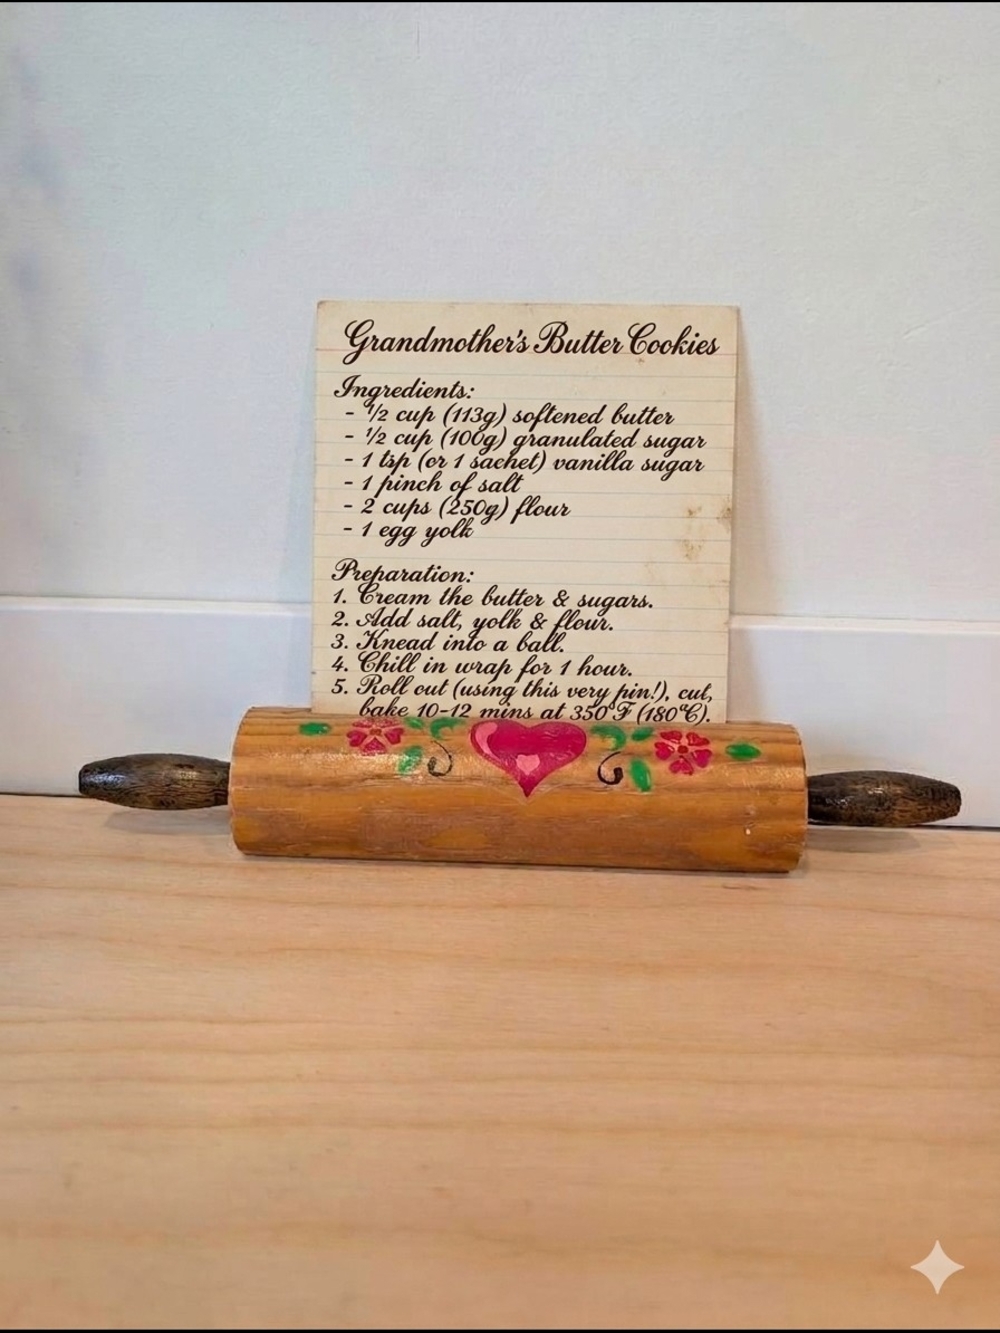 Grandmother's Butter Cookies
Ingredients:
- ½ cup (113g) softened butter
- ½ cup (100g) granulated sugar
- 1 tsp (or 1 sachet) vanilla sugar
- 1 pinch of salt
- 2 cups (250g) flour
- 1 egg yolk
Preparation:
1. Cream the butter & sugars.
2. Add salt, yolk & flour.
3. Knead into a ball.
4. Chill in wrap for 1 hour.
5. Roll out (using this very pin!), cut,
bake 10-12 mins at 350°F (180°C).